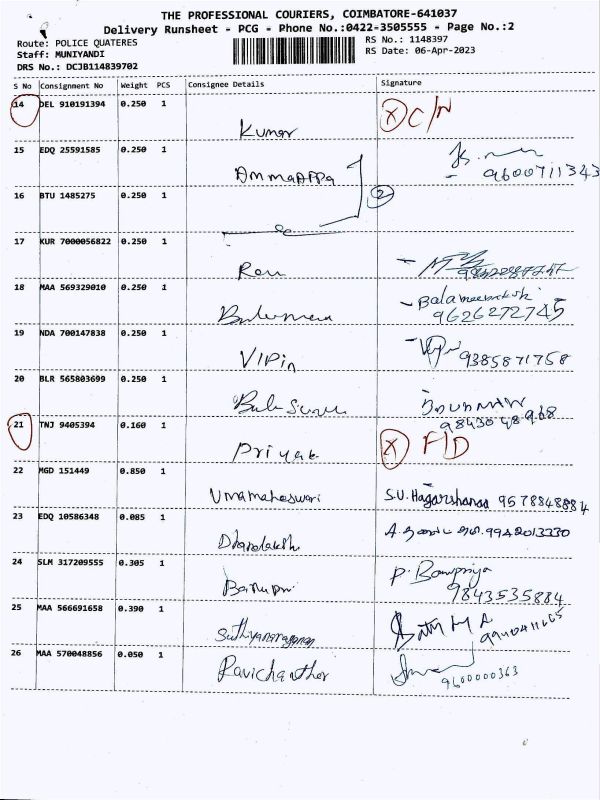 THE PROFESSIONAL COURIERS, COIMBATORE-641037
Delivery Runsheet - PCG - Phone No.:0422-3505555 - Page No.:2
Route: POLICE QUATERES
RS No.: 1148397
Staff: MUNIYANDI
RS Date: 06-Apr-2023
DRS No.: DCJB114839702
S No Consignment No Weight PCS Consignee Details Signature
14 DEL 910191394 0.250 1 Kumar X C/N
15 EDQ 25591585 0.250 1 Ammaappa 9600711343
16 BTU 1485275 0.250 1 2
17 KUR 7000056822 0.250 1 Ravi
18 MAA 569329010 0.250 1 Balameenakshi
9626272745
19 NDA 700147838 0.250 1 Vipin 9385871758
20 BLR 565803699 0.250 1
9843048968
21 TNJ 9405394 0.160 1 Priyak X F/D
22 MGD 151449 0.850 1 Umamaheswari S.U. Hagarshanaa 9578848884
23 EDQ 10586348 0.085 1 9942013330
24 SLM 317209555 0.305 1 Banupri P. Banupriya
9843535884
25 MAA 566691658 0.390 1 Sathyanarayanan
26 MAA 570048856 0.050 1 Ravichanther
9600000363